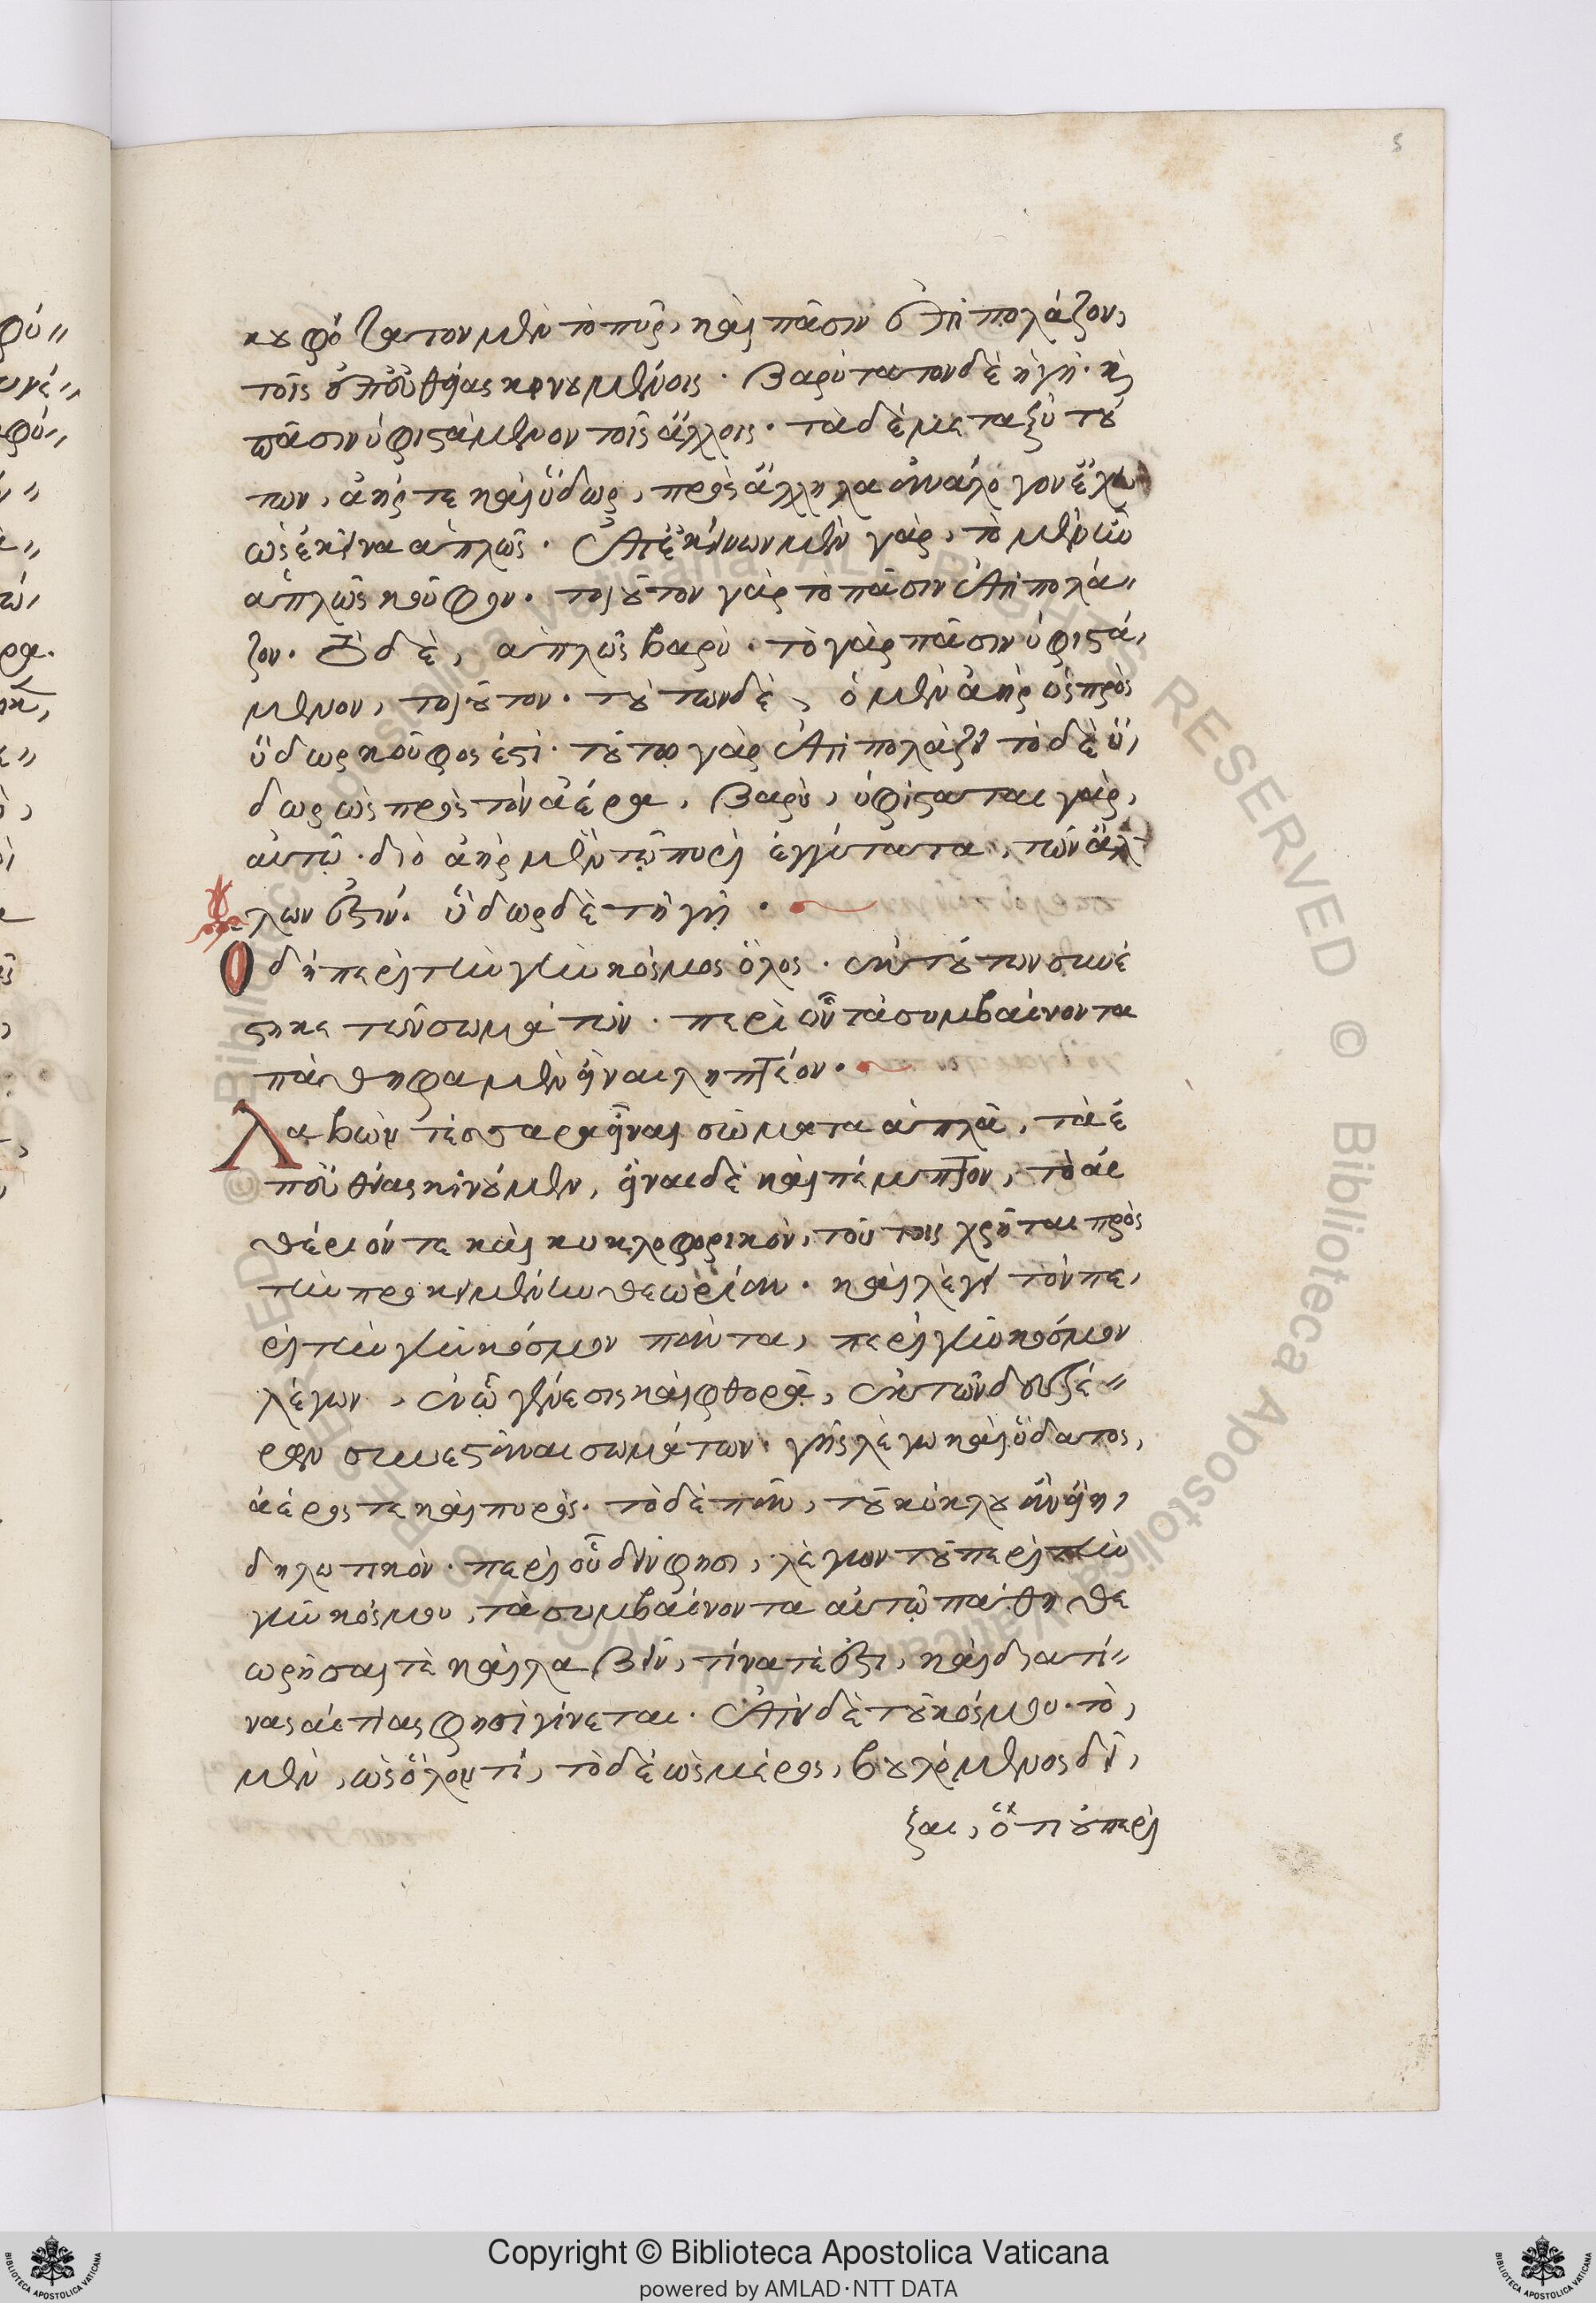 κουφότατον μὲν τὸ πῦρ, καὶ πᾶσιν ἐπιπολάζον,
τοῖς ἐπ' εὐθείας κινουμένοις. βαρύτατον δὲ ἡ γῆ. καὶ
πᾶσιν ὑφιστάμενον τοῖς ἄλλοις. τὰ δὲ μεταξὺ τού
των, ἀήρ τε καὶ ὕδωρ, πρὸς ἄλληλα ἀνάλογον ἔχει
ὡς ἐκεῖνα ἁπλῶς. ἐπ' ἐκείνων μὲν γὰρ, τὸ μὲν ἦν
ἁπλῶς κοῦφον. τοιοῦτον γὰρ τὸ πᾶσιν ἐπιπολά"
ζον. τὸ δὲ, ἁπλῶς βαρύ. τὸ γὰρ πᾶσιν ὑφιστά,
μενον, τοιοῦτον. τούτων δὲ, ὁ μὲν ἀὴρ ὡς πρὸς
ὕδωρ κοῦφος ἐστὶ. τούτῳ γὰρ ἐπιπολάζει τὸ δὲ ὕ,
δωρ ὡς πρὸς τὸν ἀέρα, βαρὺ, ὑφίσταται γὰρ,
αὐτῷ. διὸ ἀὴρ μὲν τῷ πυρὶ ἐγγύτατα, τῶν ἄλ
λων ἐστίν. ὕδωρ δὲ τῇ γῇ.
Ὁ δὴ περὶ τὴν γῆν κόσμος ὅλος. ἐκ τούτων συνέ
στηκε τῶν σωμάτων. περὶ ὧν τὰ συμβαίνοντα
πάθη φαμὲν εἶναι ληπτέον.
Λαβὼν τέσσαρα εἶναι σώματα ἁπλᾶ, τὰ ἐ
π' εὐθείας κινούμεν, εἶναι δὲ καὶ πέμπτον, τὸ αἰ
θέριόν τε καὶ κυκλοφορικὸν, τούτοις χρῆται πρὸς
τὴν προκειμένην θεωρίαν. καὶ λέγει τὸν πε,
ρὶ τὴν γῆν κόσμον πάντα, περὶ γῆν κόσμον
λέγων, ἐν ᾧ γένεσις καὶ φθορά, ἐκ τῶν δευτέ"
ρων συνεστάναι σωμάτων. γῆς λέγω καὶ ὕδατος,
ἀέρος τε καὶ πυρός. τὸ δὲ πᾶν, τοῦ κύκλου ἂν εἴη,
δηλωτικόν. περὶ οὗ δεῖν φησι, λέγων τοῦ περὶ τὴν
γῆν κόσμου, τὰ συμβαίνοντα αὐτῷ πάθη θε
ωρῆσαί τε καὶ λαβεῖν, τίνα τέ ἐστι, καὶ διὰ τί"
νας αἰτίας φησὶ γίνεται. ἐπεὶ δὲ τοῦ κόσμου. τὸ,
μὲν, ὡς ὅλον τί, τὸ δὲ ὡς μέρος, βουλόμενος δεῖ,
ξαι, ὅτι οὐ περὶ